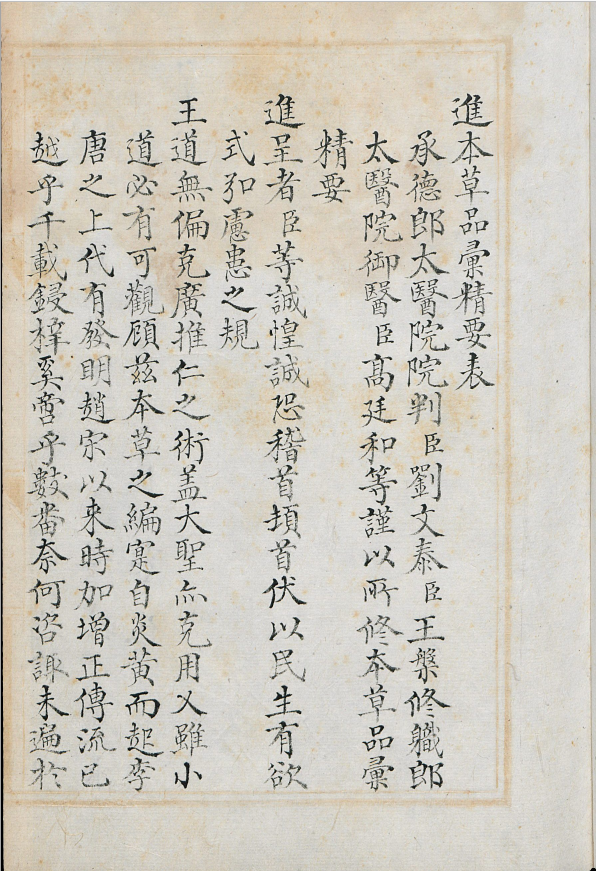 進本草品彙精要表
承德郎太醫院院判臣劉文泰臣王槃修職郎
太醫院御醫臣高廷和等謹以所修本草品彙
精要
進呈者臣等誠惶誠恐稽首頓首伏以民生有欲
式弘慮患之規
王道無偏克廣推仁之術盖大聖亦克用乂雖小
道必有可觀顧兹本草之編寔自炎黄而起李
唐之上代有發明趙宋以来時加增正傳流已
越乎千載鋟梓奚啻乎數畨奈何咨諏未遍於